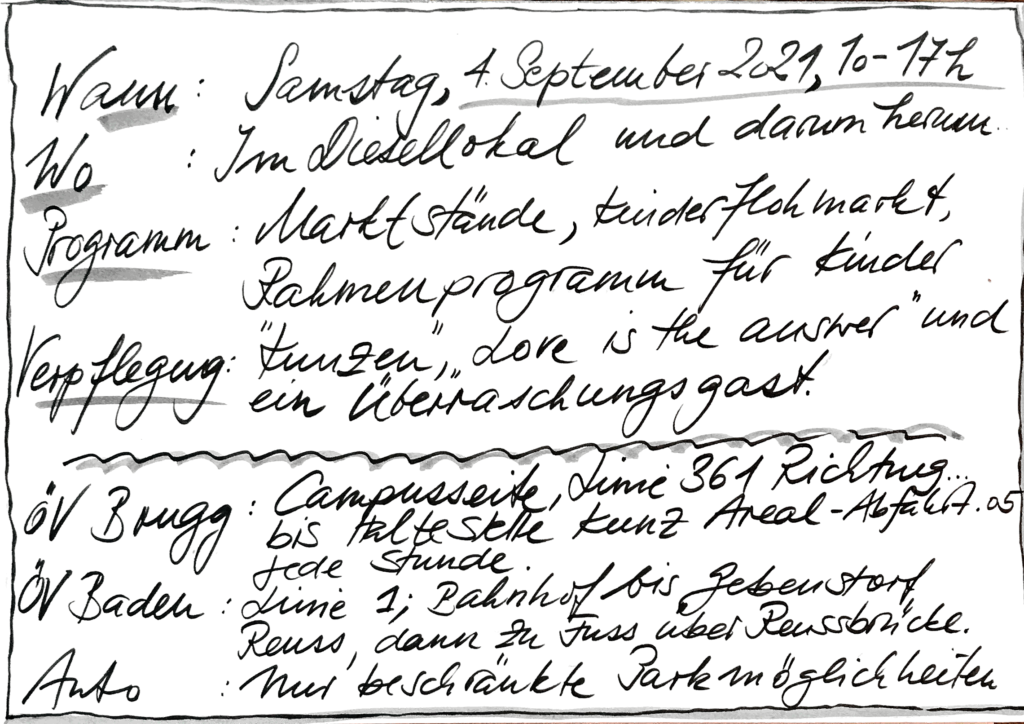 Wann : Samstag, 4. September 2021, 10-17h
Wo : Im Diesellokal und darum herum.
Programm : Marktstände, Kinderflohmarkt,
Rahmenprogramm für Kinder
Verpflegung : "Kunzen", "Love is the answer" und
ein Überraschungsgast.
ÖV Brugg : Campusseite, Linie 361 Richtung...
bis Haltestelle Kunz Areal - Abfahrt .05
jede Stunde.
ÖV Baden : Linie 1; Bahnhof bis Gebenstorf
Reuss, dann zu Fuss über Reussbrücke.
Auto : Nur beschränkte Parkmöglichkeiten